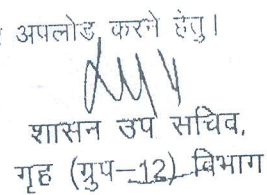 अपलोड करने हेतु।
शासन उप सचिव,
गृह (ग्रुप–12) विभाग